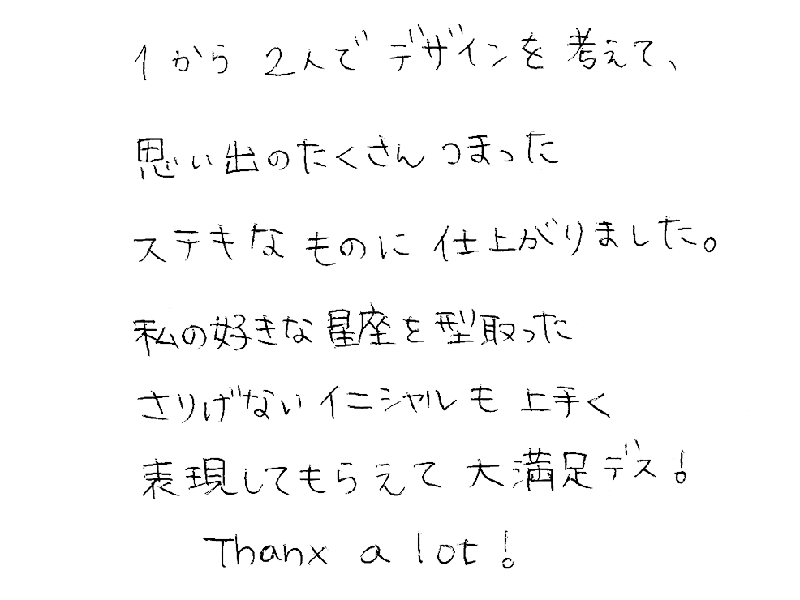 1から 2人で デザインを 考えて、
思い出のたくさん つまった
ステキな ものに 仕上がりました。
私の好きな星座を型取った
さりげない イニシャルも 上手く
表現してもらえて 大満足デス!
Thanx a lot!